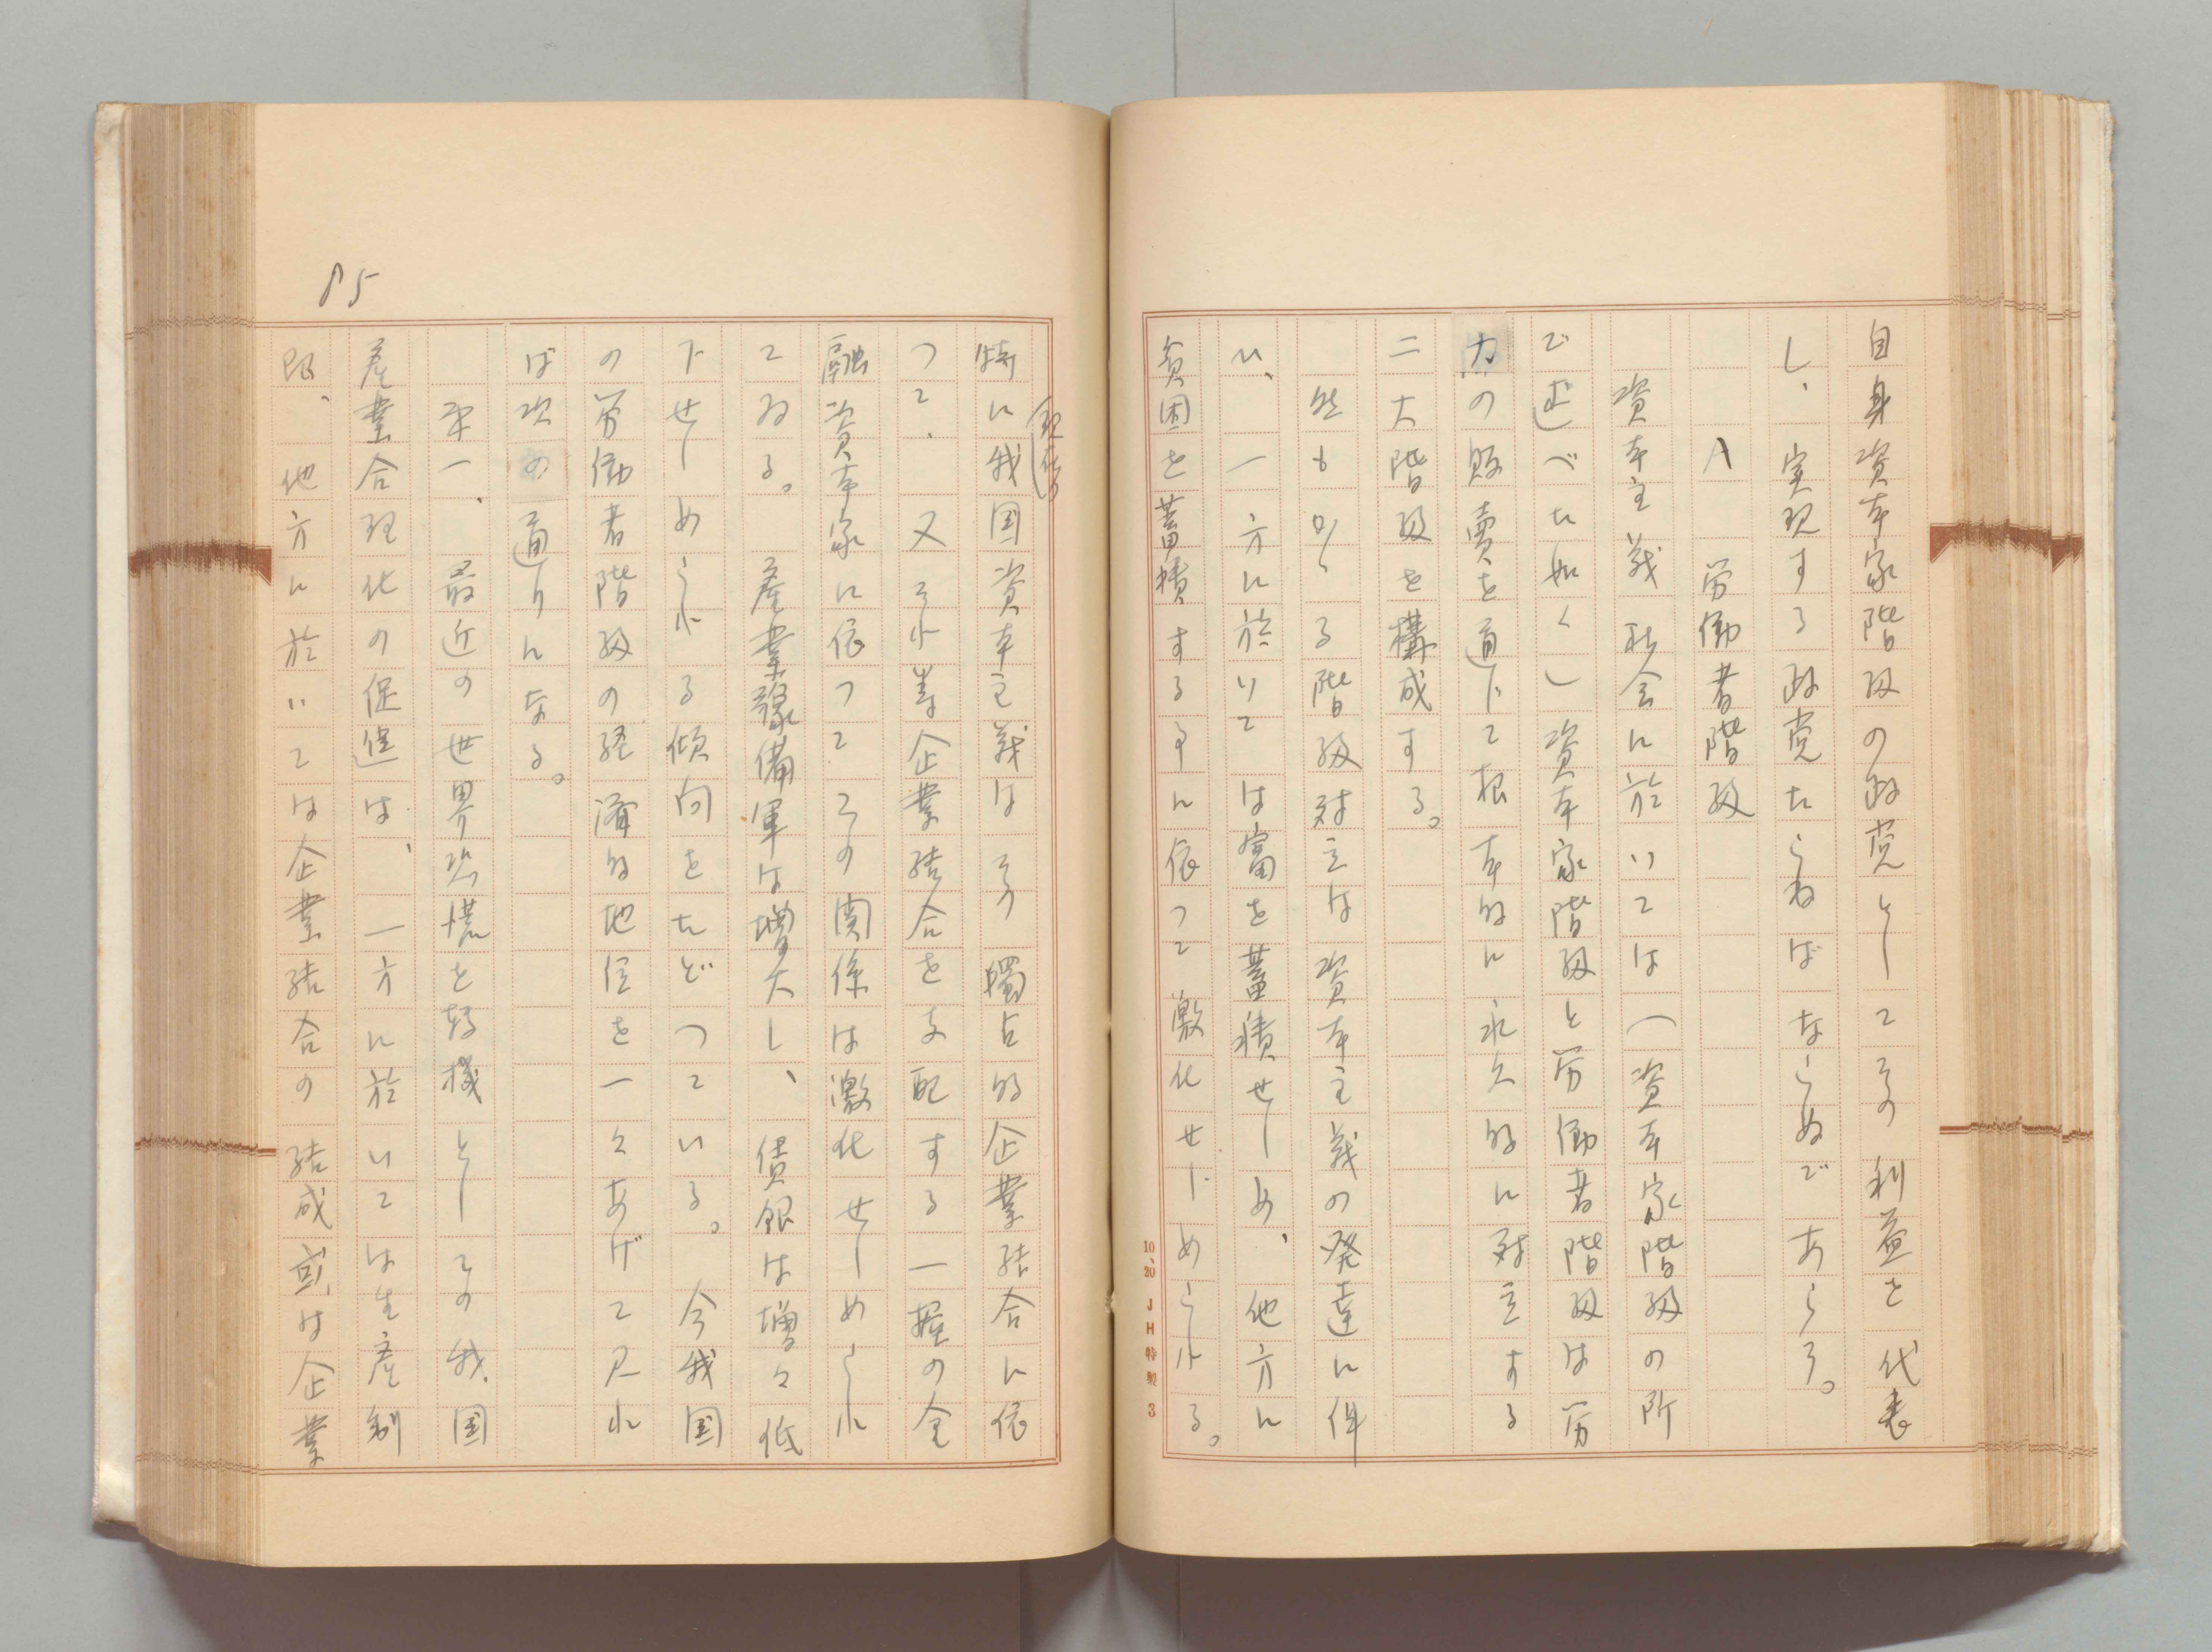 自身資本家階級の政党としてその利益を代表
し、実現する政党たらねばならぬであらう。
A 労働者階級
資本主義社会に於いては(資本家階級の所
で述べた如く)資本家階級と労働者階級は労
力の販賣を通じて根本的に永久的に対立する
二大階級を構成する。
然もかゝる階級対立は資本主義の発達に伴
ひ、一方に於いては富を蓄積せしめ、他方に
貧困を蓄積する事に依つて激化せしめられる。
10、20 JH特製 3
特に我国資本主義はその獨占的企業結合に依
つて、又それ等企業結合を支配する一握の金
融資本家に依つてその関係は激化せしめられ
てゐる。産業豫備軍は増大し、賃銀は増々低
下せしめられる傾向をたどつている。今我国
の労働者階級の経濟的地位を一々あげて見れ
ば次の通りになる。
第一、最近の世界恐慌を轉機としその我国
産業合理化の促進は、一方に於いては生産制
限、他方に於いては企業結合の結成或は企業
85